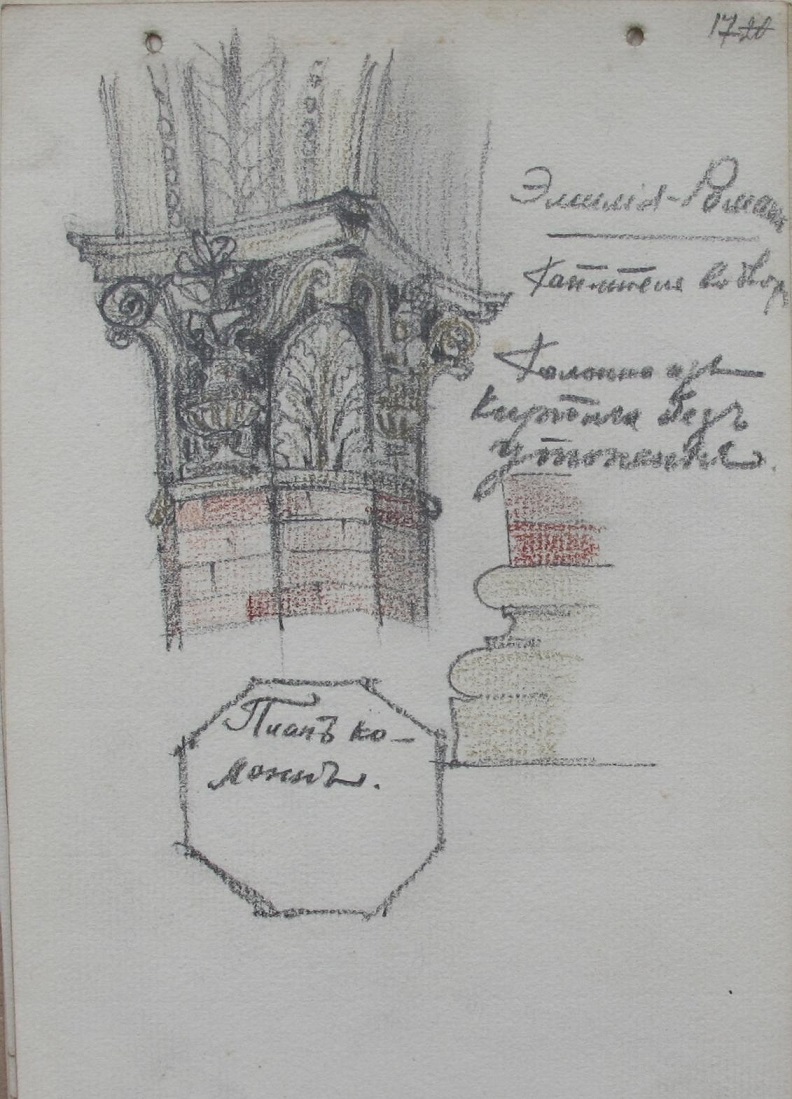 17 20
Эмилія-Роман
Капитель во двор
Колонна изъ
кирпича безъ
утоненія.
Планъ ко-
лоннъ.